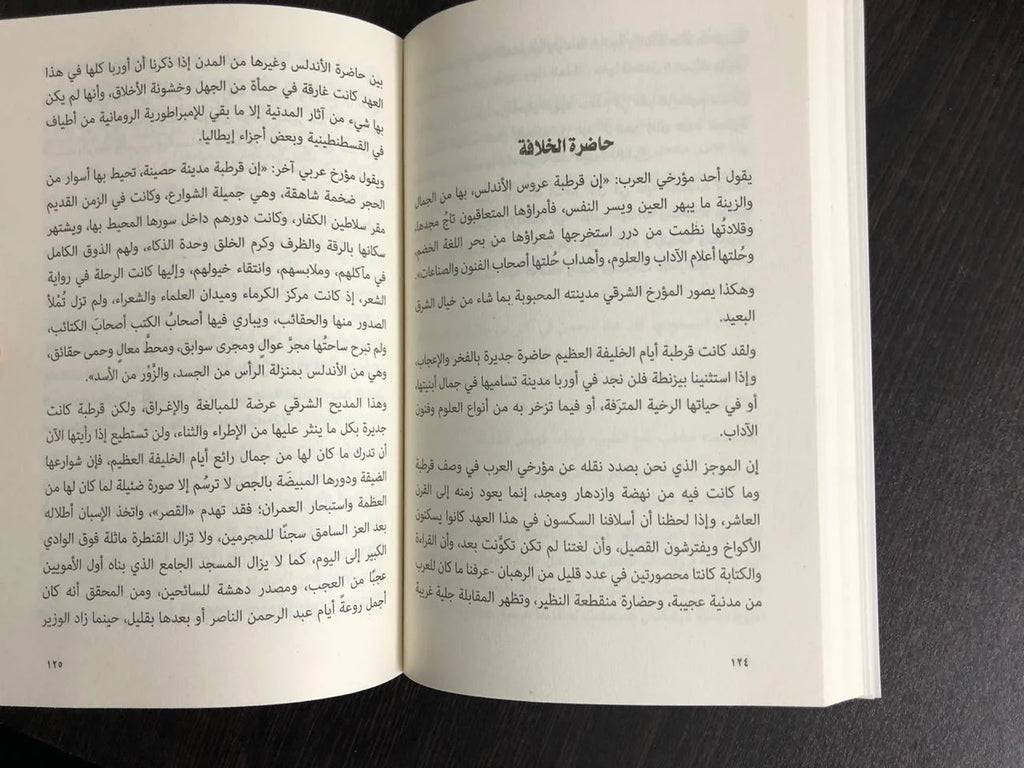 حاضرة الخلافة
يقول أحد مؤرخي العرب: «إن قرطبة عروس الأندلس، بها من الجمال
والزينة ما يبهر العين ويسر النفس، فأمراؤها المتعاقبون تاجُ مجدها،
وقلادتُها نظمت من درر استخرجها شعراؤها من بحر اللغة الخضم،
وحُلتها أعلام الآداب والعلوم، وأهداب حُلتها أصحاب الفنون والصناعات».
وهكذا يصور المؤرخ الشرقي مدينته المحبوبة بما شاء من خيال الشرق
البعيد.
ولقد كانت قرطبة أيام الخليفة العظيم حاضرة جديرة بالفخر والإعجاب،
وإذا استثنينا بيزنطة فلن نجد في أوربا مدينة تساميها في جمال أبنيتها،
أو في حياتها الرخية المترَفة، أو فيما تزخر به من أنواع العلوم وفنون
الآداب.
إن الموجز الذي نحن بصدد نقله عن مؤرخي العرب في وصف قرطبة
وما كانت فيه من نهضة وازدهار ومجد، إنما يعود زمنه إلى القرن
العاشر، وإذا لحظنا أن أسلافنا السكسون في هذا العهد كانوا يسكنون
الأكواخ ويفترشون القصيل، وأن لغتنا لم تكن تكوَّنت بعد، وأن القراءة
والكتابة كانتا محصورتين في عدد قليل من الرهبان -عرفنا ما كان للعرب
من مدنية عجيبة، وحضارة منقطعة النظير، وتظهر المقابلة جلية غريبة
١٢٤
بين حاضرة الأندلس وغيرها من المدن إذا ذكرنا أن أوربا كلها في هذا
العهد كانت غارقة في حمأة من الجهل وخشونة الأخلاق، وأنها لم يكن
بها شيء من آثار المدنية إلا ما بقي للإمبراطورية الرومانية من أطياف
في القسطنطينية وبعض أجزاء إيطاليا.
ويقول مؤرخ عربي آخر: «إن قرطبة مدينة حصينة، تحيط بها أسوار من
الحجر ضخمة شاهقة، وهي جميلة الشوارع، وكانت في الزمن القديم
مقر سلاطين الكفار، وكانت دورهم داخل سورها المحيط بها، ويشتهر
سكانها بالرقة والظرف وكرم الخلق وحدة الذكاء، ولهم الذوق الكامل
في مآكلهم، وملابسهم، وانتقاء خيولهم، وإليها كانت الرحلة في رواية
الشعر، إذ كانت مركز الكرماء وميدان العلماء والشعراء، ولم تزل تُمْلأ
الصدور منها والحقائب، ويباري فيها أصحابُ الكتب أصحابَ الكتائب،
ولم تبرح ساحتُها مجرَّ عوالٍ ومجرى سوابق، ومحطَّ معالٍ وحمى حقائق،
وهي من الأندلس بمنزلة الرأس من الجسد، والزُوْر من الأسد».
وهذا المديح الشرقي عرضة للمبالغة والإغراق، ولكن قرطبة كانت
جديرة بكل ما ينثر عليها من الإطراء والثناء، ولن تستطيع إذا رأيتها الآن
أن تدرك ما كان لها من جمال رائع أيام الخليفة العظيم، فإن شوارعها
الضيقة ودورها المبيضَة بالجص لا ترسُم إلا صورة ضئيلة لما كان لها من
العظمة واستبحار العمران؛ فقد تهدم «القصر»، واتخذ الإسبان أطلاله
بعد العز السامق سجنًا للمجرمين، ولا تزال القنطرة ماثلة فوق الوادي
الكبير إلى اليوم، كما لا يزال المسجد الجامع الذي بناه أول الأمويين
عجبًا من العجب، ومصدر دهشة للسائحين، ومن المحقق أنه كان
أجمل روعةً أيام عبد الرحمن الناصر أو بعدها بقليل، حينما زاد الوزير
١٢٥